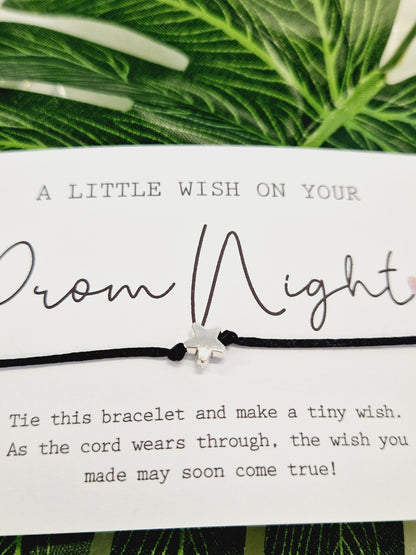 A LITTLE WISH ON YOUR
Prom Night
Tie this bracelet and make a tiny wish.
As the cord wears through, the wish you
made may soon come true!